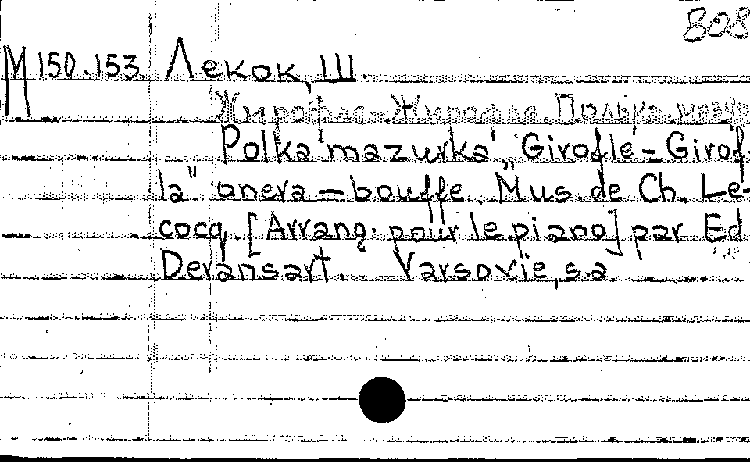 808
М 150.153 Лекок, Ш.
Жирофле-Жирофля Полька мазур
Polka mazurka „Giroflé-Girof-
la" opera-bouffe. Mus. de Ch. Le-
cocq. [Arrang. pour le piano] par Ed
Deransart. Varsovie, s.a